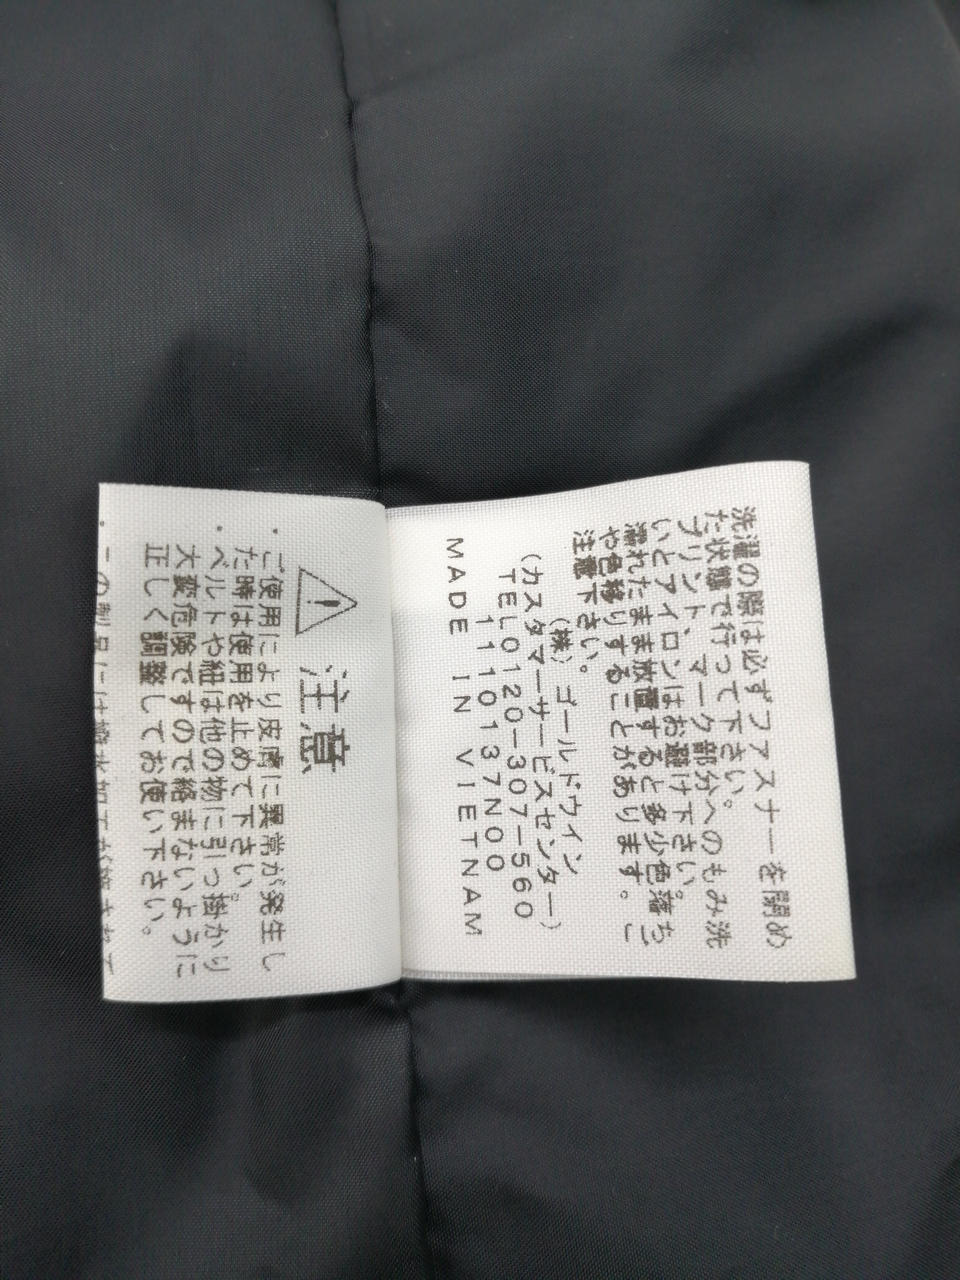 洗濯の際は必ずファスナーを閉め
た状態で行って下さい。
プリント、マーク部分へのもみ洗
いとアイロンはお避け下さい。
濡れたまま放置すると多少色落ち
や色移りすることがあります。ご
注意下さい。
(株)ゴールドウイン
(カスタマーサービスセンター)
TEL0120-307-560
1110137N00
MADE IN VIETNAM
注意
・ご使用により皮膚に異常が発生し
た時は使用を止めて下さい。
・ベルトや紐は他の物に引っ掛かり
大変危険ですので絡まないように
正しく調整してお使い下さい。
・この製品には